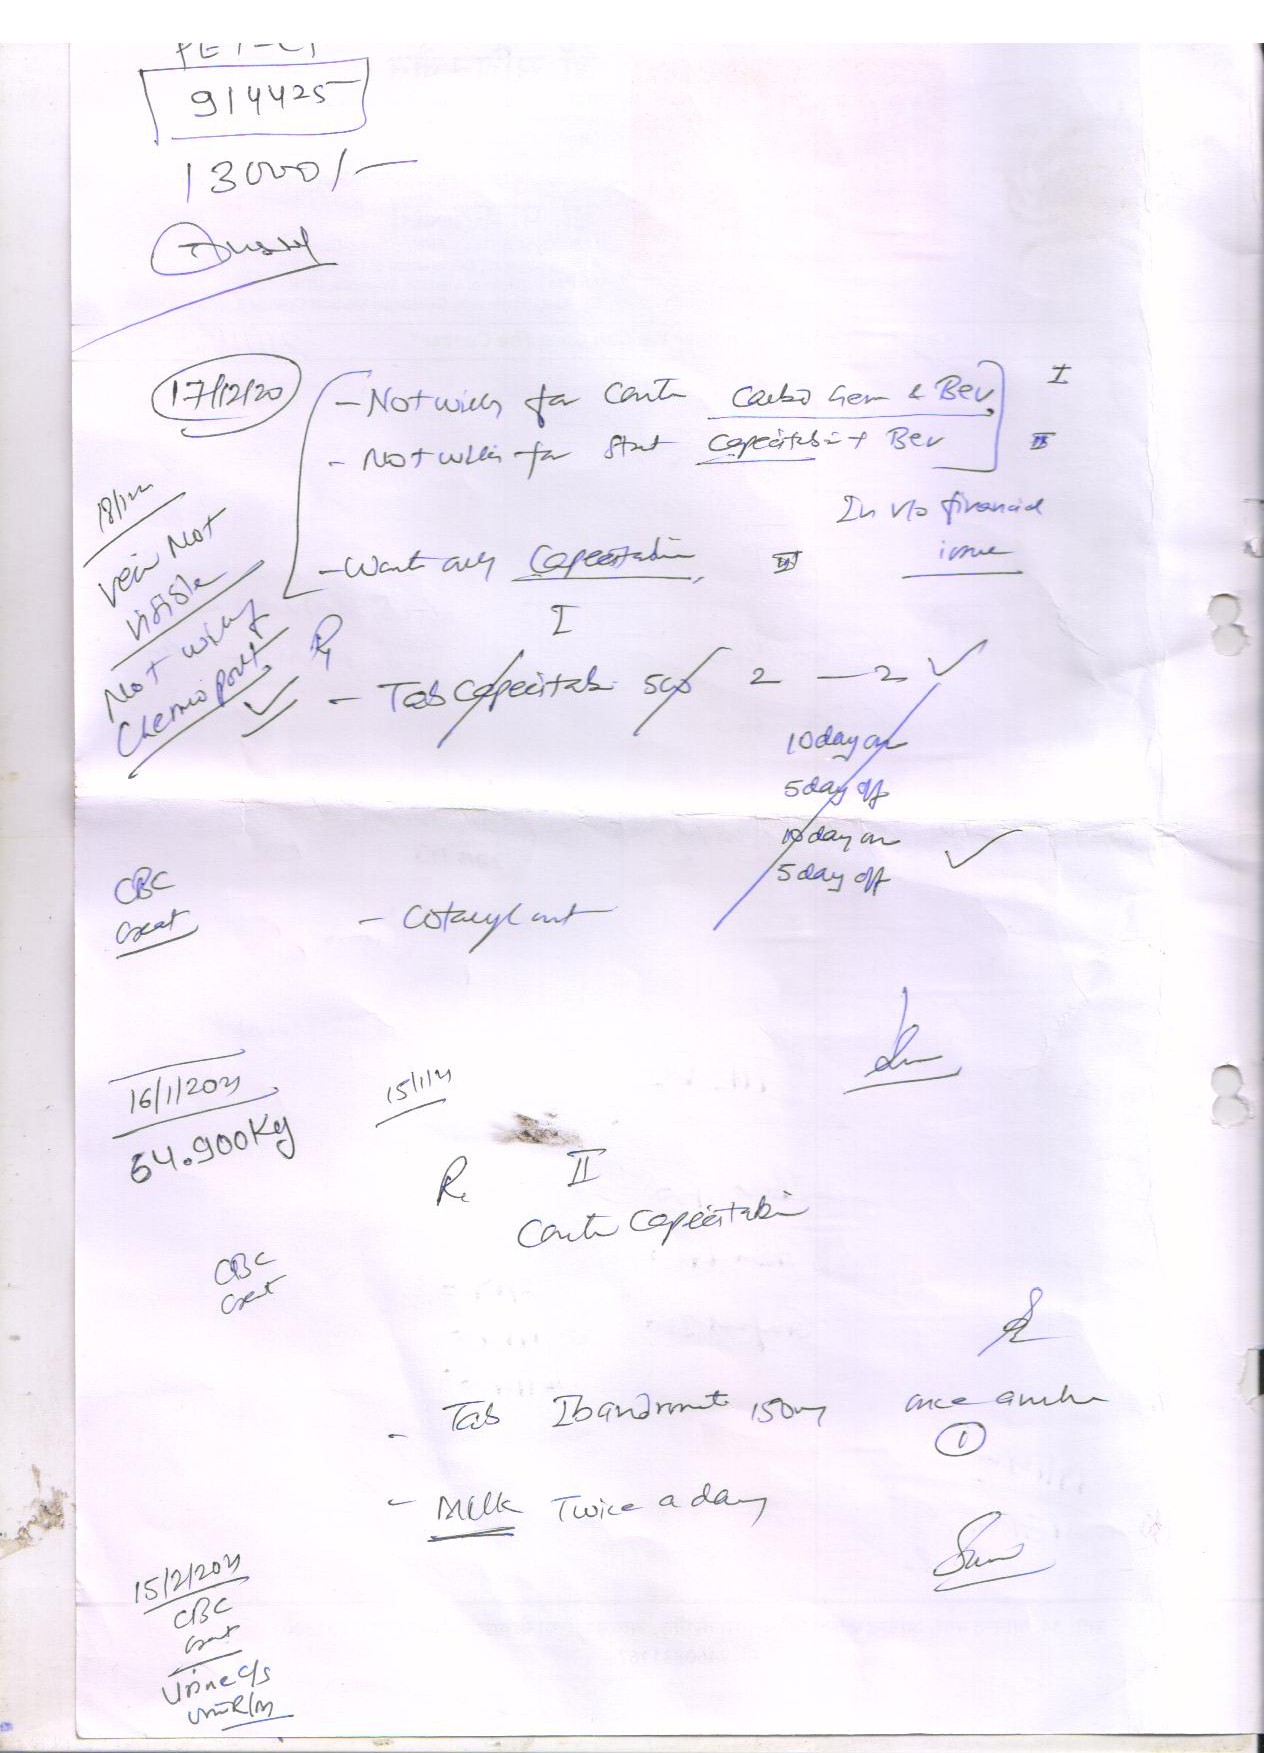 PET-CT
914425
13000/-
17/12/20
- Not willing for Conti Carbo Gem & Bev, I
- Not willing for Start Capecitabin + Bev II
In v/o financial
issue
- Want only Capecitabin, III
18/12/20
Vein Not
Visible
Not willing
Chemoport
I
Rx
- Tab Capecitabi 500 2 — 2
10 day on
5 day off
10 day on
5 day off
CBC
Creat
- Cotaryl ont
16/1/2021
54.900Kg
15/1/21
Rx II
Conti Capecitabin
CBC
Creat
- Tab Ibandronate 150mg once a month
1
- Milk Twice a day
15/2/2021
CBC
Creat
Urine C/s
Urine R/M